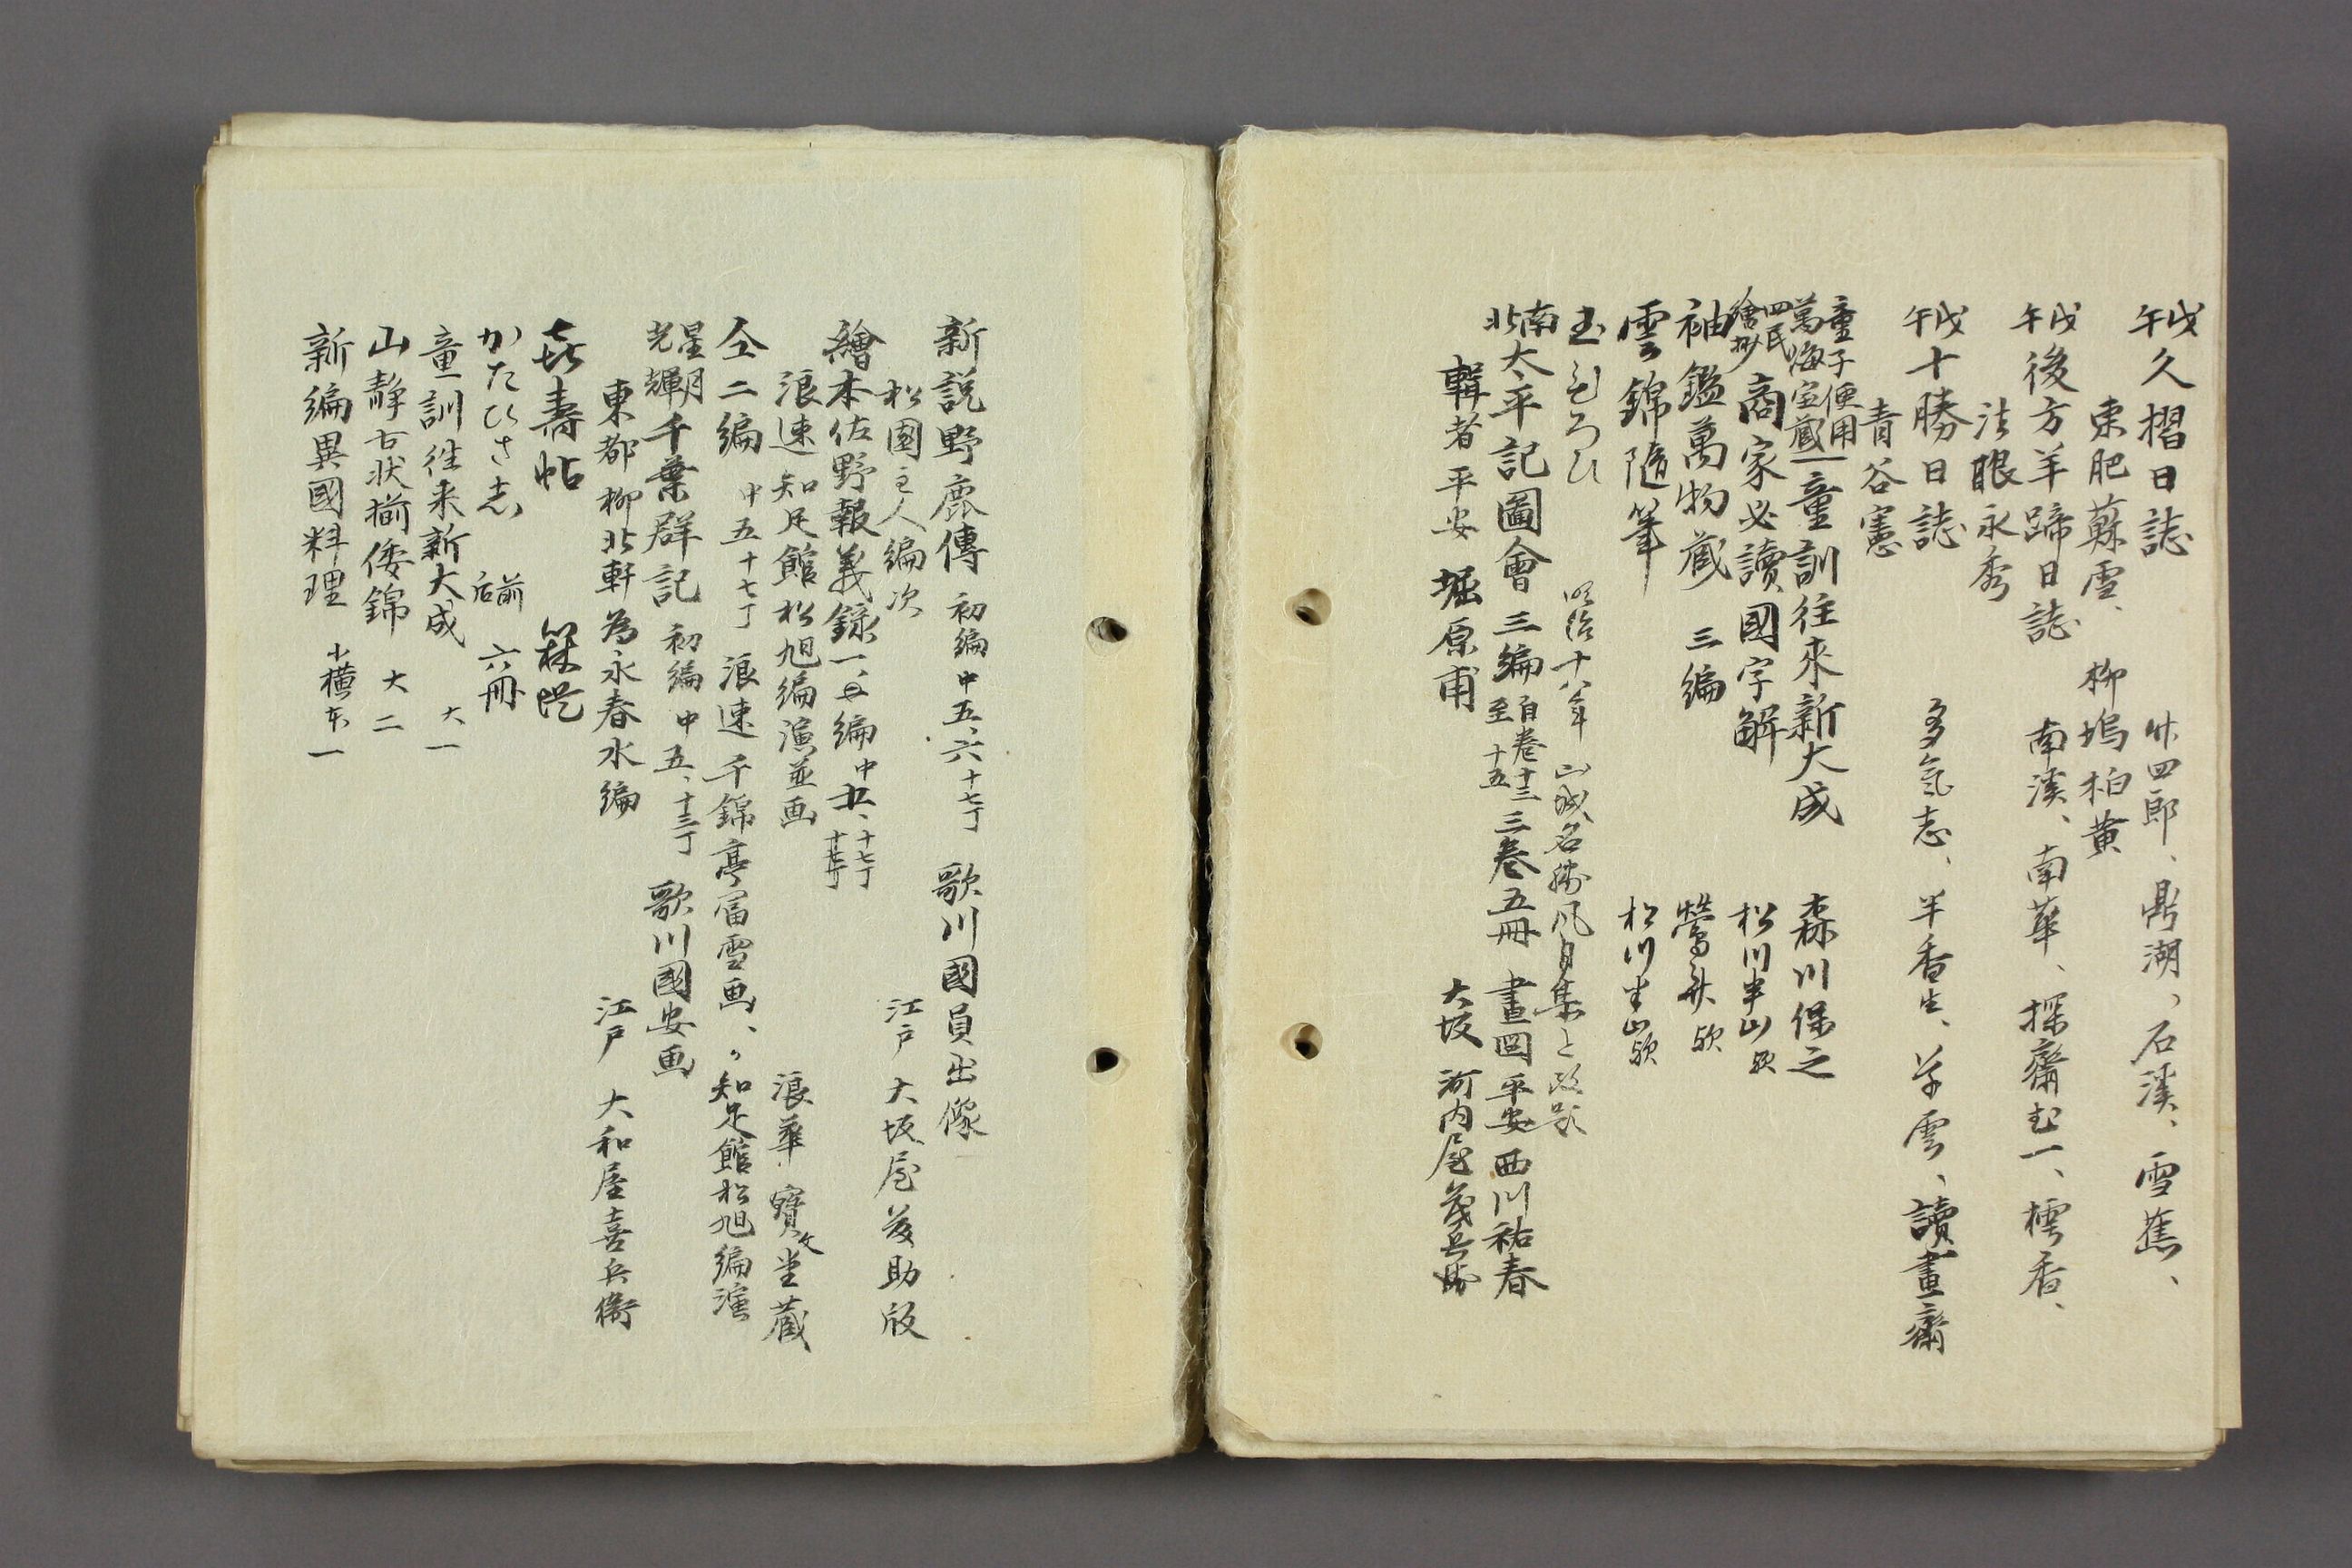 戊午久摺日誌 竹四郎、鼎湖、石溪、雪蕉、
東肥蘇雪、柳塢柏黄
戊午後方羊蹄日誌 南溪、南華、探齋、樗香、
法眼永秀
戊午十勝日誌 多気志、半香生、雲、讀畫齋
青谷憲
童子便用萬海宝蔵 童訓往來新大成 森川保之
四民繪抄 商家必讀國字解 松川半山歟
袖鑑萬物蔵 三編 鶯
雲錦隨筆 松川半山歟
明治十八年 山城名勝風月集と改題
南北太平記圖會 三編 自卷十三至十五 三卷五冊 畫図平安西川祐春
輯者平安 堀原甫 大坂 河内屋茂兵衛
新説野鹿傳 初編 中五、六十七丁 歌川國員出像
松園主人編次 江戸 大坂屋 助版
繪本佐野報義録 一、二編 中 十七丁
浪速 知足館松旭編演並画 浪華 寶文堂蔵
仝二編 中五十七丁 浪速 千錦亭富雪画、〃知足館松旭編演
星月光輝千葉群記 初編 中五、十三丁 歌川國安画
東都 柳北軒為永春水編 江戸 大和屋喜兵衛
㐂壽帖
かたひさ志 前后 六冊
童訓往来新大成 大一
山静古状揃倭錦 大二
新編異國料理 小横本一